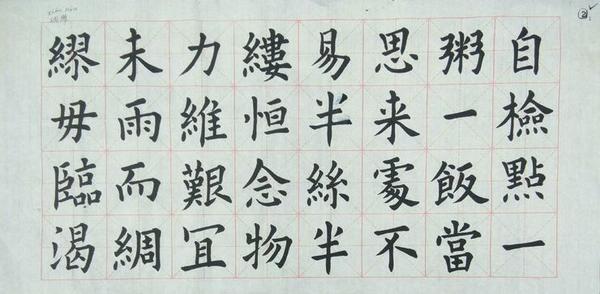 自檢點一
粥一飯當
思来處不
易半絲半
縷恒念物
力維艱宜
未雨而綢
繆毋臨渴